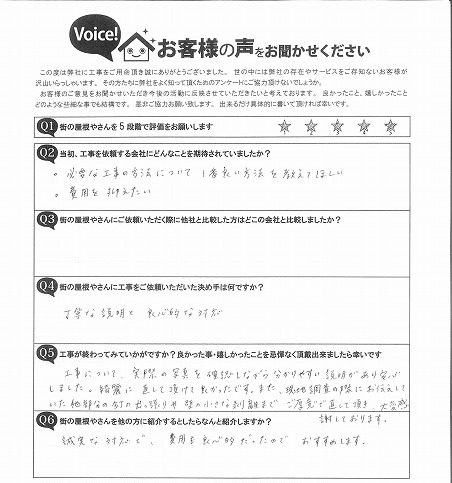 Voice!
お客様の声をお聞かせください
この度は弊社に工事をご用命頂き誠にありがとうございました。 世の中には弊社の存在やサービスをご存知ないお客様が
沢山いらっしゃいます。 その方たちに弊社をよく知って頂くためのアンケートにご協力頂けないでしょうか。
お客様のご意見をお聞かせいただき今後の活動に反映させていただきたいと考えております。 良かったこと、嬉しかったこと
どのような些細な事でも結構です。 是非ご協力お願い致します。 出来るだけ具体的に書いて頂ければ幸いです。
Q1 街の屋根やさんを5段階で評価をお願いします
1 2 3 4 5
Q2 当初、工事を依頼する会社にどんなことを期待されていましたか?
。必要な工事の方法について 1番良い方法を教えてほしい
。費用を抑えたい
Q3 街の屋根やさんにご依頼いただく際に他社と比較した方はどこの会社と比較しましたか?
Q4 街の屋根やさんに工事をご依頼いただいた決め手は何ですか?
丁寧な説明と良心的な対応
Q5 工事が終わってみていかがですか?良かった事・嬉しかったことを忌憚なく頂戴出来ましたら幸いです
工事について、実際の写真を確認しながら分かりやすい説明があり安心
しました。綺麗に直して頂けて良かったです。また、現地調査の際にお伝えして
いた他部分の釘の出っ張りや壁の小さな剥離まで ご厚意で直して頂き 大変感
謝しております。
Q6 街の屋根やさんを他の方に紹介するとしたらなんと紹介しますか?
誠実な対応で、費用も良心的だったので おすすめします。